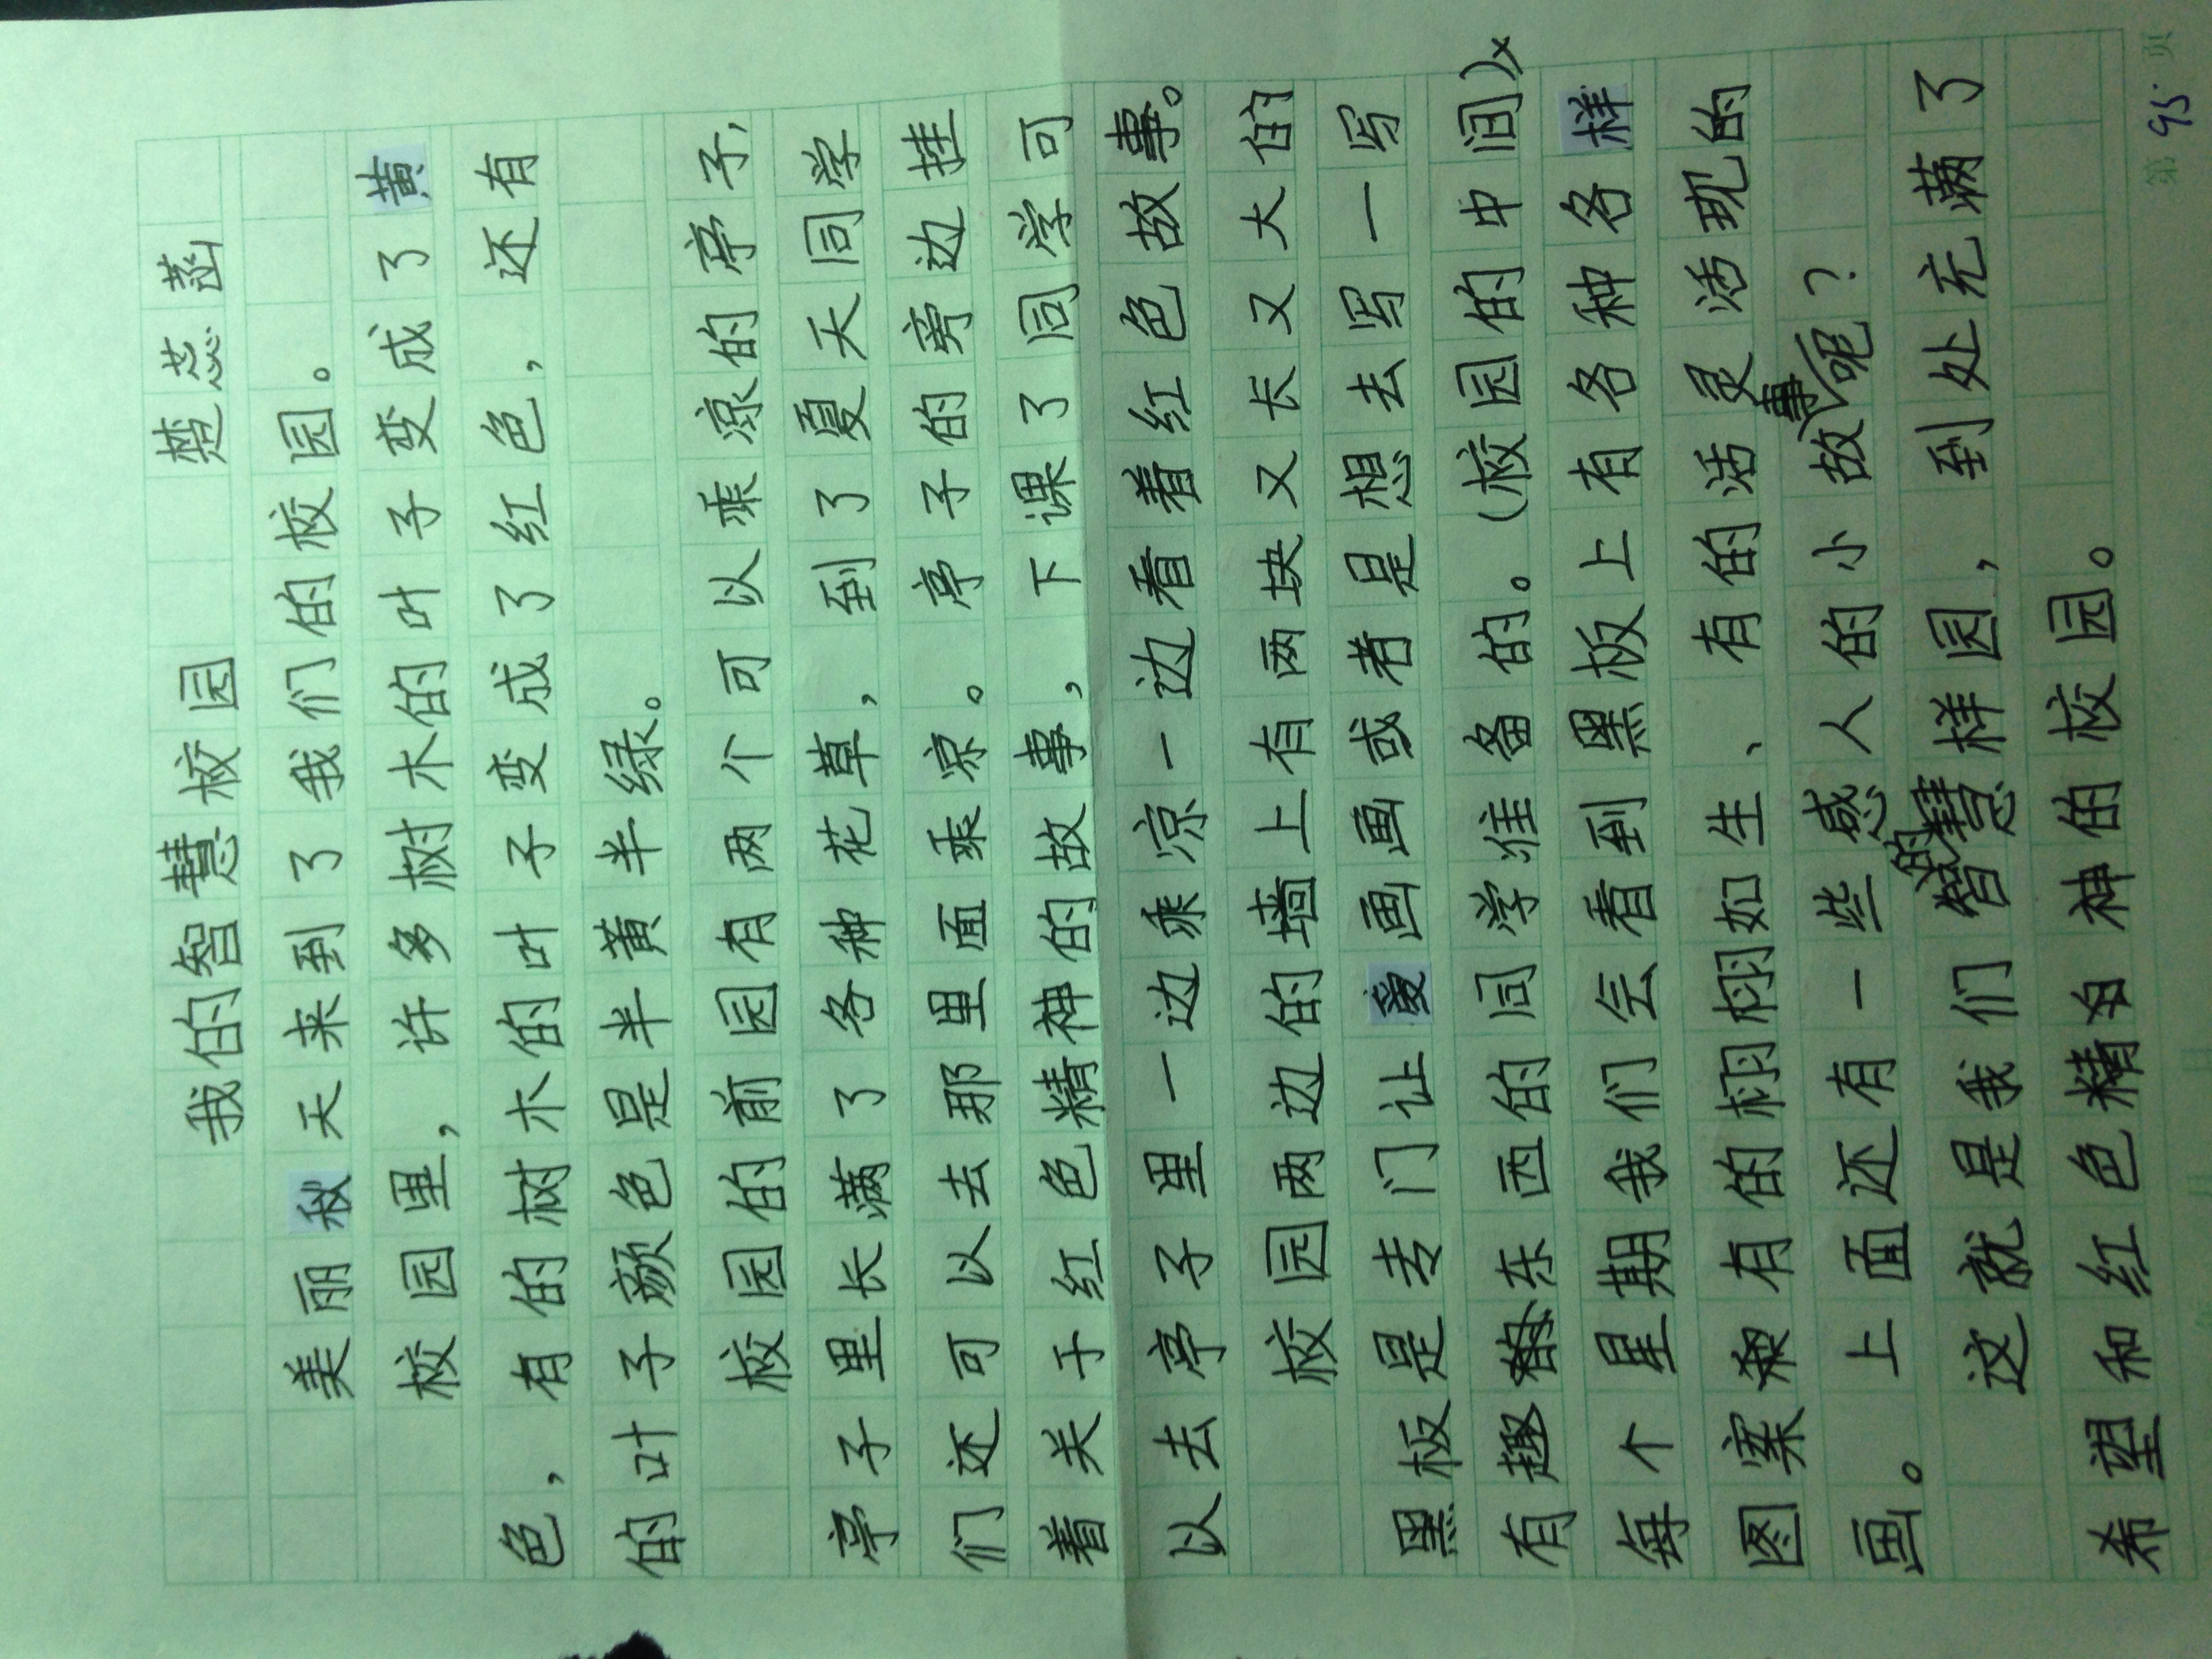 我的智慧校园 楚芯菡
美丽秋天来到了我们的校园。
校园里，许多树木的叶子变成了黄
色，有的树木的叶子变成了红色，还有
的叶子颜色是半黄半绿。
校园的前园有两个可以乘凉的亭子，
亭子里长满了各种花草，到了夏天同学
们还可以去那里面乘凉。亭子的旁边挂
着关于红色精神的故事，下课了同学可
以去亭子里一边乘凉一边看着红色故事。
校园两边的墙上有两块又长又大的
黑板是专门让爱画画或者是想去写一写
有趣的东西的同学准备的。(校园的中间)
每个星期我们会看到黑板上有各种各样
图案有的栩栩如生、有的活灵活现的
画。上面还有一些感人的小故事呢？
这就是我们的智慧样园，到处充满了
希望和红色精神的校园。
第95页